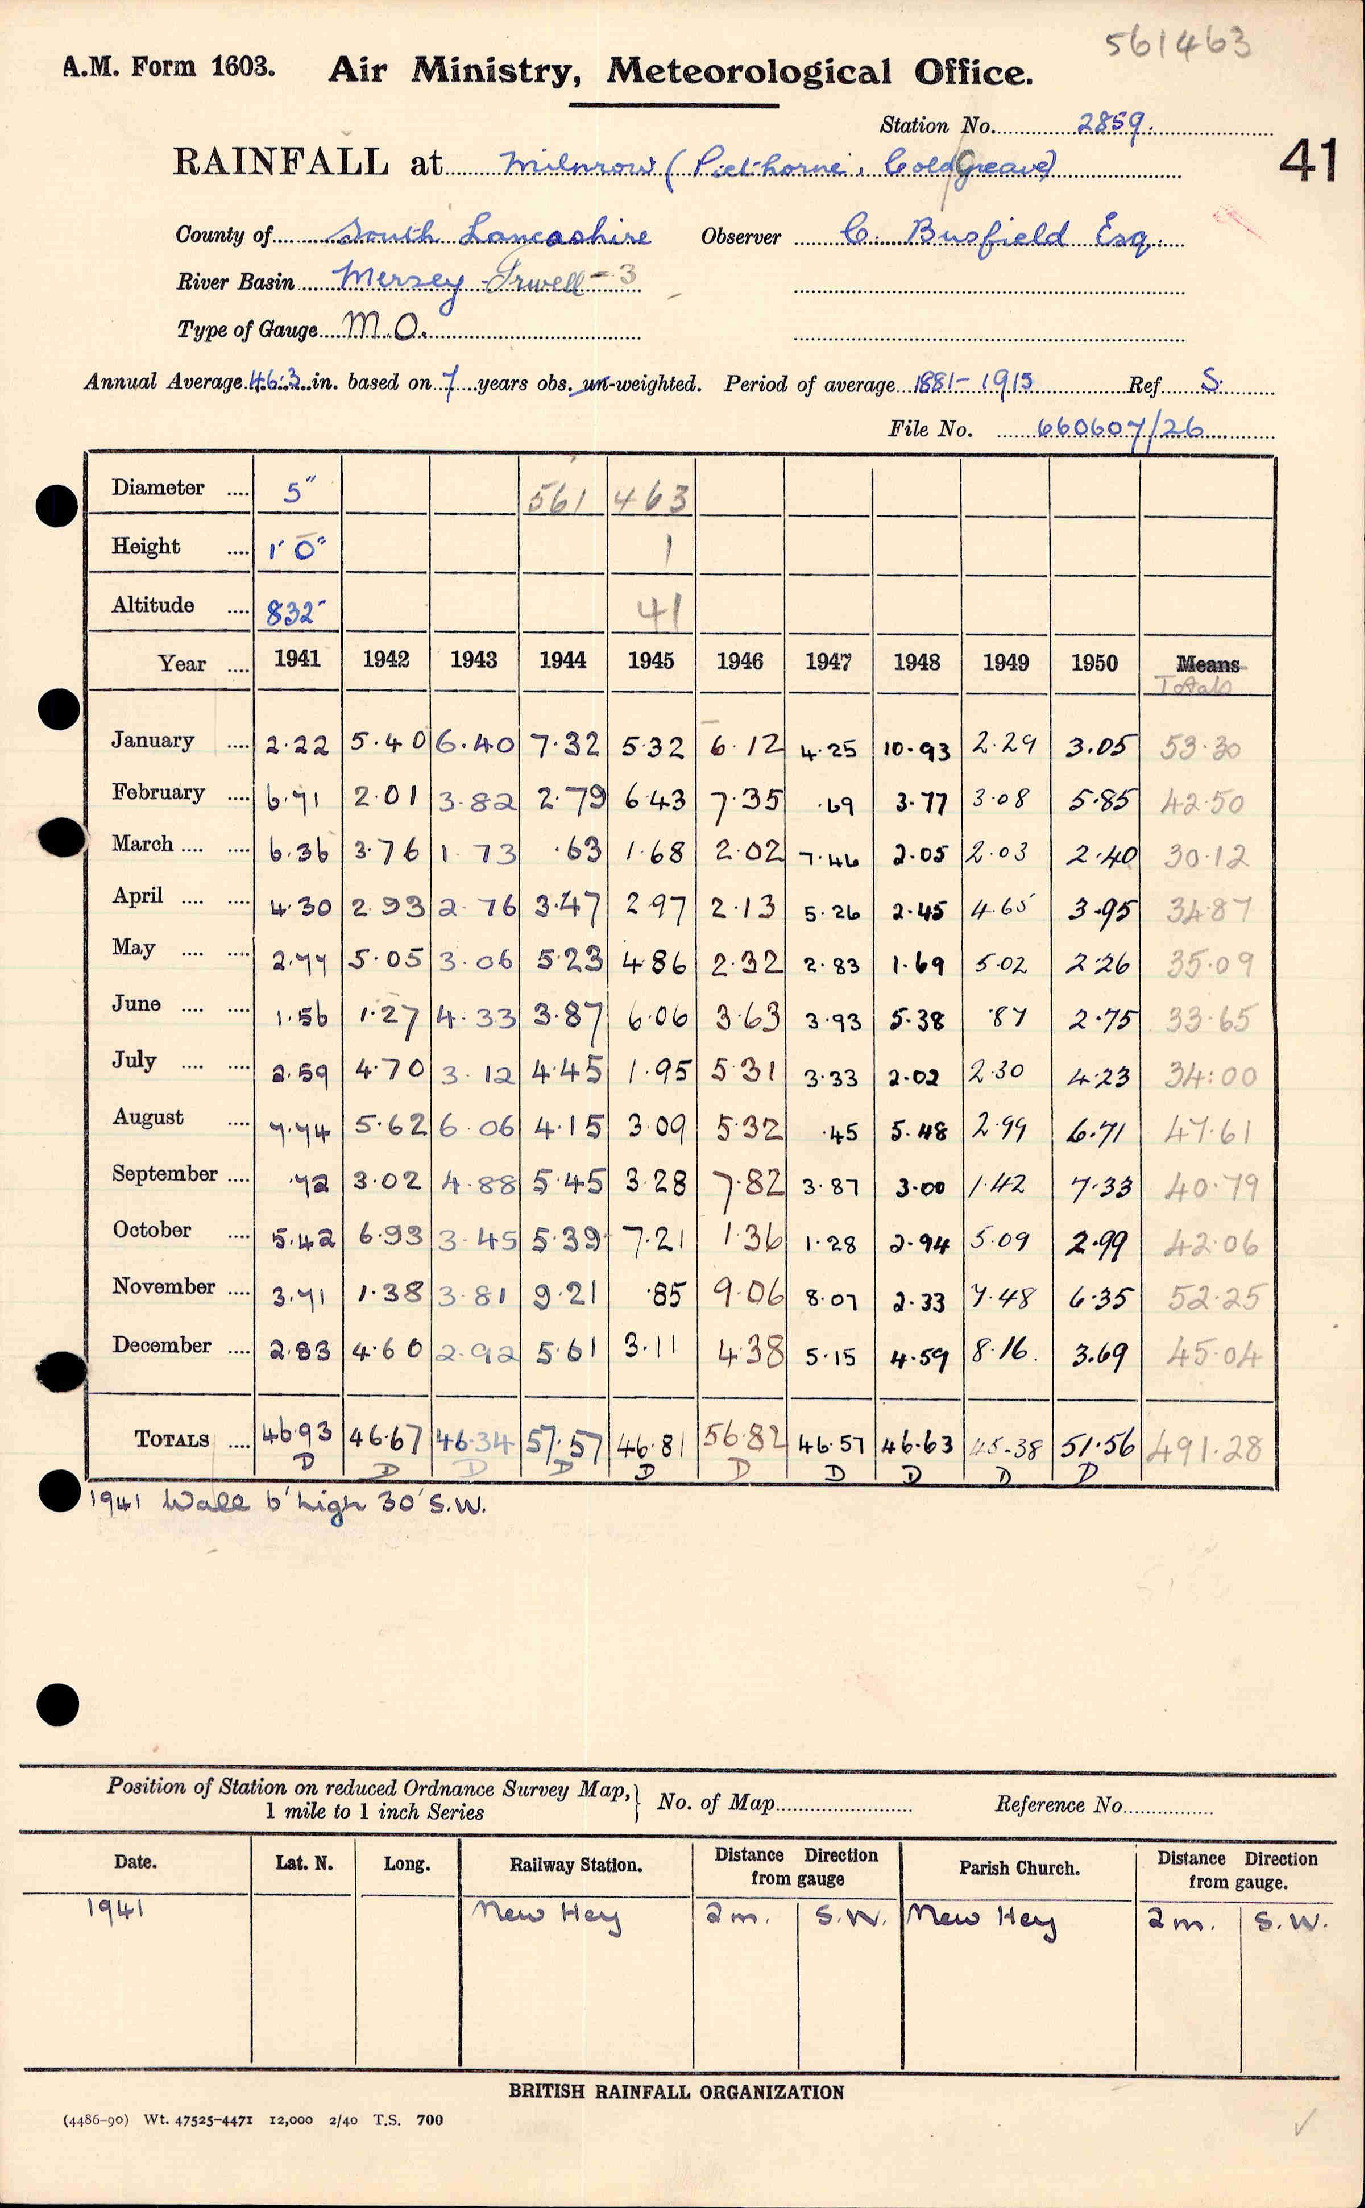 561463
A.M. Form 1603. Air Ministry, Meteorological Office.
Station No. 2859.
RAINFALL at Milnrow (Piethorne, Coldgreave) 41
County of South Lancashire Observer C. Busfield Esq.
River Basin Mersey - Irwell - 3
Type of Gauge M.O.
Annual Average 46.3 in. based on 7 years obs. un-weighted. Period of average 1881-1915 Ref S.
File No. 660607/26
Diameter .... 5" 561 463
Height .... 1' 0" 1
Altitude .... 832' 41
Year .... 1941 1942 1943 1944 1945 1946 1947 1948 1949 1950 Means
Totals
January .... 2.22 5.40 6.40 7.32 5.32 6.12 4.25 10.93 2.29 3.05 53.30
February .... 6.71 2.01 3.82 2.79 6.43 7.35 .69 3.77 3.08 5.85 42.50
March .... .... 6.36 3.76 1.73 .63 1.68 2.02 7.46 2.05 2.03 2.40 30.12
April .... .... 4.30 2.93 2.76 3.47 2.97 2.13 5.26 2.45 4.65 3.95 34.87
May .... .... 2.77 5.05 3.06 5.23 4.86 2.32 2.83 1.69 5.02 2.26 35.09
June .... .... 1.56 1.27 4.33 3.87 6.06 3.63 3.93 5.38 .87 2.75 33.65
July .... .... 2.59 4.70 3.12 4.45 1.95 5.31 3.33 2.02 2.30 4.23 34.00
August .... 7.74 5.62 6.06 4.15 3.09 5.32 .45 5.48 2.99 6.71 47.61
September .... .72 3.02 4.88 5.45 3.28 7.82 3.87 3.00 1.42 7.33 40.79
October .... 5.42 6.93 3.45 5.39 7.21 1.36 1.28 2.94 5.09 2.99 42.06
November .... 3.71 1.38 3.81 9.21 .85 9.06 8.07 2.33 7.48 6.35 52.25
December .... 2.83 4.60 2.92 5.61 3.11 4.38 5.15 4.59 8.16 3.69 45.04
TOTALS .... 46.93 46.67 46.34 57.57 46.81 56.82 46.57 46.63 45.38 51.56 491.28
D D D D D D D D D D
1941 Wall 6' high 30' S.W.
Position of Station on reduced Ordnance Survey Map,
1 mile to 1 inch Series } No. of Map Reference No.
Date. Lat. N. Long. Railway Station. Distance Direction from gauge Parish Church. Distance Direction from gauge.
1941 New Hey 2 m. S.W. New Hey 2 m. S.W.
BRITISH RAINFALL ORGANIZATION
(4486-90) Wt. 47525-4471 12,000 2/40 T.S. 700